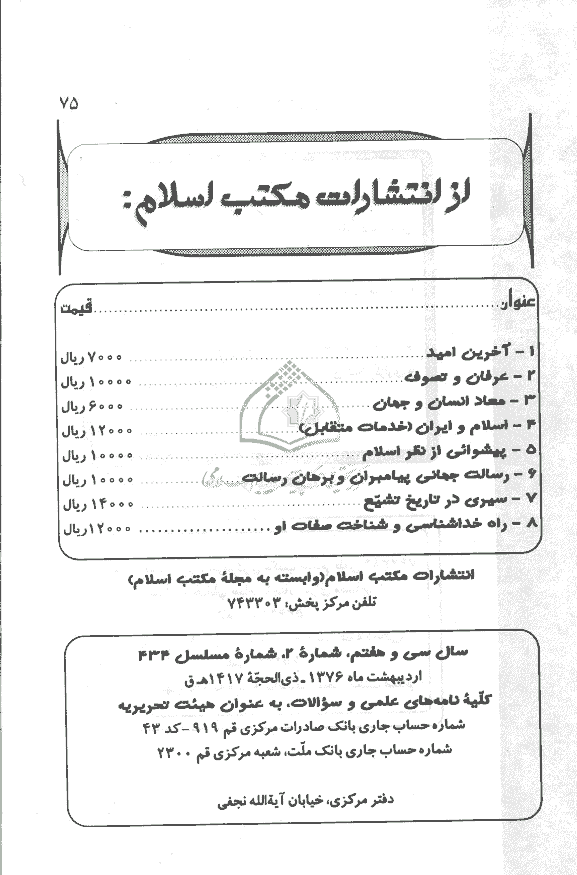 ۷۵
از انتشارات مکتب اسلام:
عنوان ........................................ قیمت
۱ - آخرین امید ........................................ ۷۰۰۰ ریال
۲ - عرفان و تصوف ........................................ ۱۰۰۰۰ ریال
۳ - معاد انسان و جهان ........................................ ۶۰۰۰ ریال
۴ - اسلام و ایران (خدمات متقابل) ........................................ ۱۲۰۰۰ ریال
۵ - پیشوائی از نظر اسلام ........................................ ۱۰۰۰۰ ریال
۶ - رسالت جهانی پیامبران و برهان رسالت ........................................ ۱۰۰۰۰ ریال
۷ - سیری در تاریخ تشیّع ........................................ ۱۴۰۰۰ ریال
۸ - راه خداشناسی و شناخت صفات او ........................................ ۱۲۰۰۰ ریال
انتشارات مکتب اسلام (وابسته به مجلهٔ مکتب اسلام)
تلفن مرکز پخش: ۷۴۳۳۰۳
سال سی و هفتم، شمارهٔ ۲، شمارهٔ مسلسل ۴۳۴
اردیبهشت ماه ۱۳۷۶ ـ ذی‌الحجّة ۱۴۱۷ هـ ق
کلّیهٔ نامه‌های علمی و سؤالات، به عنوان هیئت تحریریه
شماره حساب جاری بانک صادرات مرکزی قم ۹۱۹ - کد ۴۳
شماره حساب جاری بانک ملّت، شعبه مرکزی قم ۲۳۰۰
دفتر مرکزی، خیابان آیةالله نجفی